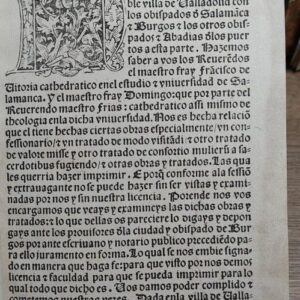 ble villa de Valladolid con
los obispados d̄ Salamāca
⁊ Burgos ⁊ los otros obispa
dos ⁊ Abadias d̄los puer
tos a esta parte. Hazemos
saber a vos los Reuerēdos
el maestro fray Frācisco de
Uitoria cathedratico enel estudio ⁊ vniuersidad de Sa-
lamanca. Y el maestro fray Domingo: que por parte del
Reuerendo maestro frias: cathedratico assi mismo de
theologia enla dicha vniuersidad. Nos es hecha relaciō
que el tiene hechas ciertas obras especialmente / vn con-
fessionario / ⁊ vn tratado de modo visitādi ⁊ otro tratado
de valore misse y otro tratado de consortio mulierū a sa-
cerdotibus fugiendo / ⁊ otras obras y tratados. Las qua
les querria hazer imprimir. E porq̄ conforme ala sessiō
y extrauagante no se puede hazer sin ser vistas y exami-
nadas por nos y sin nuestra licencia. Porende nos vos
encargamos que veays y examineys las dichas obras y
tratados: ⁊ lo que dellas os pareciere lo digays y depon
gays ante los prouisores d̄la ciudad y obispado de Bur
gos por ante escriuano y notario publico precediēdo pa-
ra ello juramento en forma. Lo qual se nos embie signa-
do en manera que haga fe: para que visto por nos demos
licencia ⁊ facultad para que se pueda imprimir para lo
qual todo que dicho es. Uos damos poder complido ⁊
cometemos nuestras vezes. Dada enla villa de Ualla